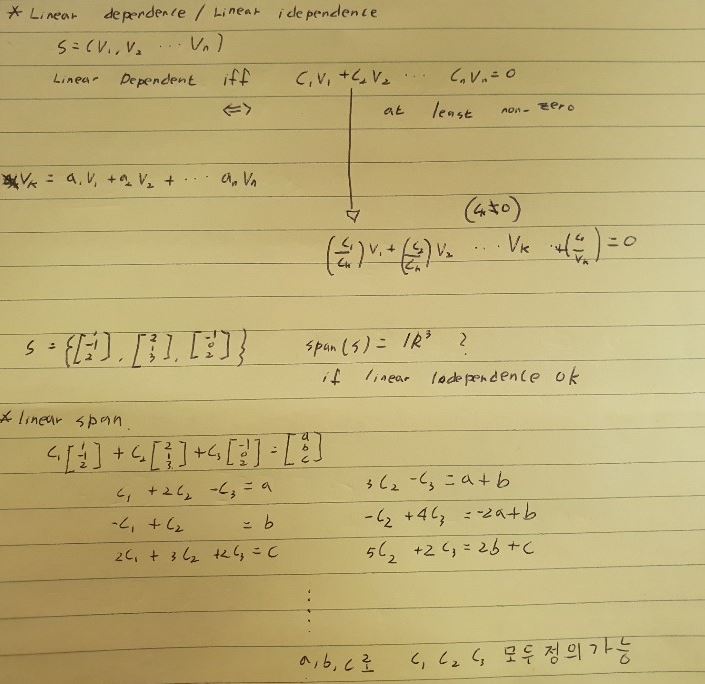 * Linear dependence / Linear idependence
S = (V₁, V₂ ⋯ Vₙ)
Linear Dependent iff C₁V₁ + C₂V₂ ⋯ CₙVₙ = 0
⇔ at least non-zero
Vₖ = a₁V₁ + a₂V₂ + ⋯ aₙVₙ
(Cₖ ≠ 0)
(C₁/Cₖ)V₁ + (C₂/Cₖ)V₂ ⋯ Vₖ ⋯ = 0
S = {[1 -1 2], [2 1 3], [-1 0 2]} span(s) = ℝ³ ?
if linear Independence ok
* linear span.
C₁[1 -1 2] + C₂[2 1 3] + C₃[-1 0 2] = [a b c]
C₁ + 2C₂ - C₃ = a 3C₂ - C₃ = a + b
-C₁ + C₂ = b -C₂ + 4C₃ = -2a + b
2C₁ + 3C₂ + 2C₃ = C 5C₂ + 2C₃ = 2b + C
a, b, c로 C₁ C₂ C₃ 모두 정의 가능